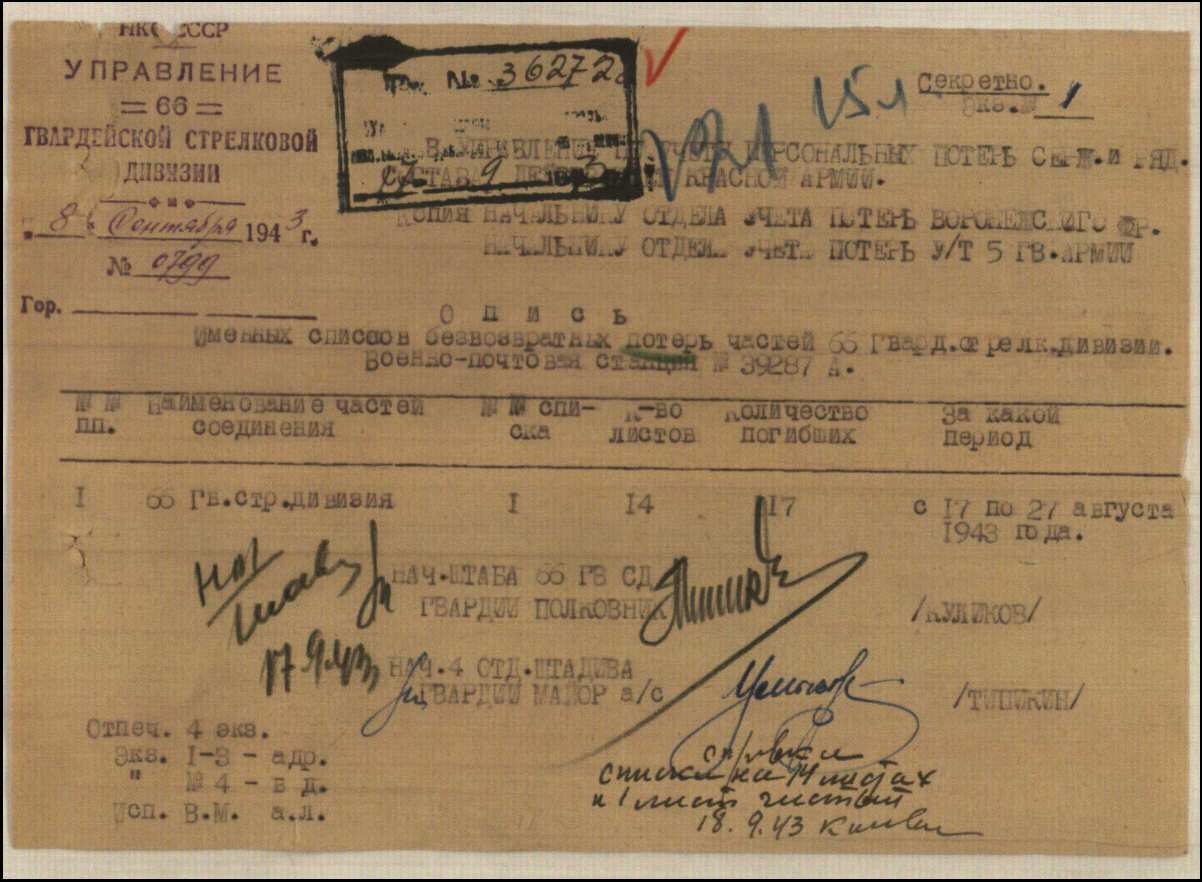 НКО СССР
УПРАВЛЕНИЕ
= 66 =
ГВАРДЕЙСКОЙ СТРЕЛКОВОЙ
ДИВИЗИИ
"8" Сентября 1943 г.
№ 0799
Гор.
№ 36272
17 9 3
15 л
Секретно.
Экз.№ 1
В УПРАВЛЕНИЕ ПО УЧЕТУ ПЕРСОНАЛЬНЫХ ПОТЕРЬ СЕРЖ.И РЯД.
СОСТАВА КРАСНОЙ АРМИИ.
КОПИЯ НАЧАЛЬНИКУ ОТДЕЛА УЧЕТА ПОТЕРЬ ВОРОНЕЖСКОГО ФР.
НАЧАЛЬНИКУ ОТДЕЛА УЧЕТА ПОТЕРЬ У/Т 5 ГВ.АРМИИ
О П И С Ь
Именных списков безвозвратных потерь частей 66 Гвард.стрелк.дивизии.
Военно-почтовая станция № 39287 А.
№ № Наименование частей № № спи- К-во Количество За какой
пп. соединения ска листов погибших период
I 66 Гв.стр.дивизия I I4 II7 с I7 по 27 августа
1943 года.
НАЧ.ШТАБА 66 ГВ СД
ГВАРДИИ ПОЛКОВНИК /КУЛИКОВ/
17.9.43
НАЧ.4 ОТД.ШТАДИВА
ГВАРДИИ МАЙОР а/с /ТИПИКИН/
Отпеч. 4 экз.
Экз. I-3 - адр.
" № 4 - в д.
Исп. В.М. а.л.
справка
списки на 14 листах
и 1 лист чистый
18.9.43